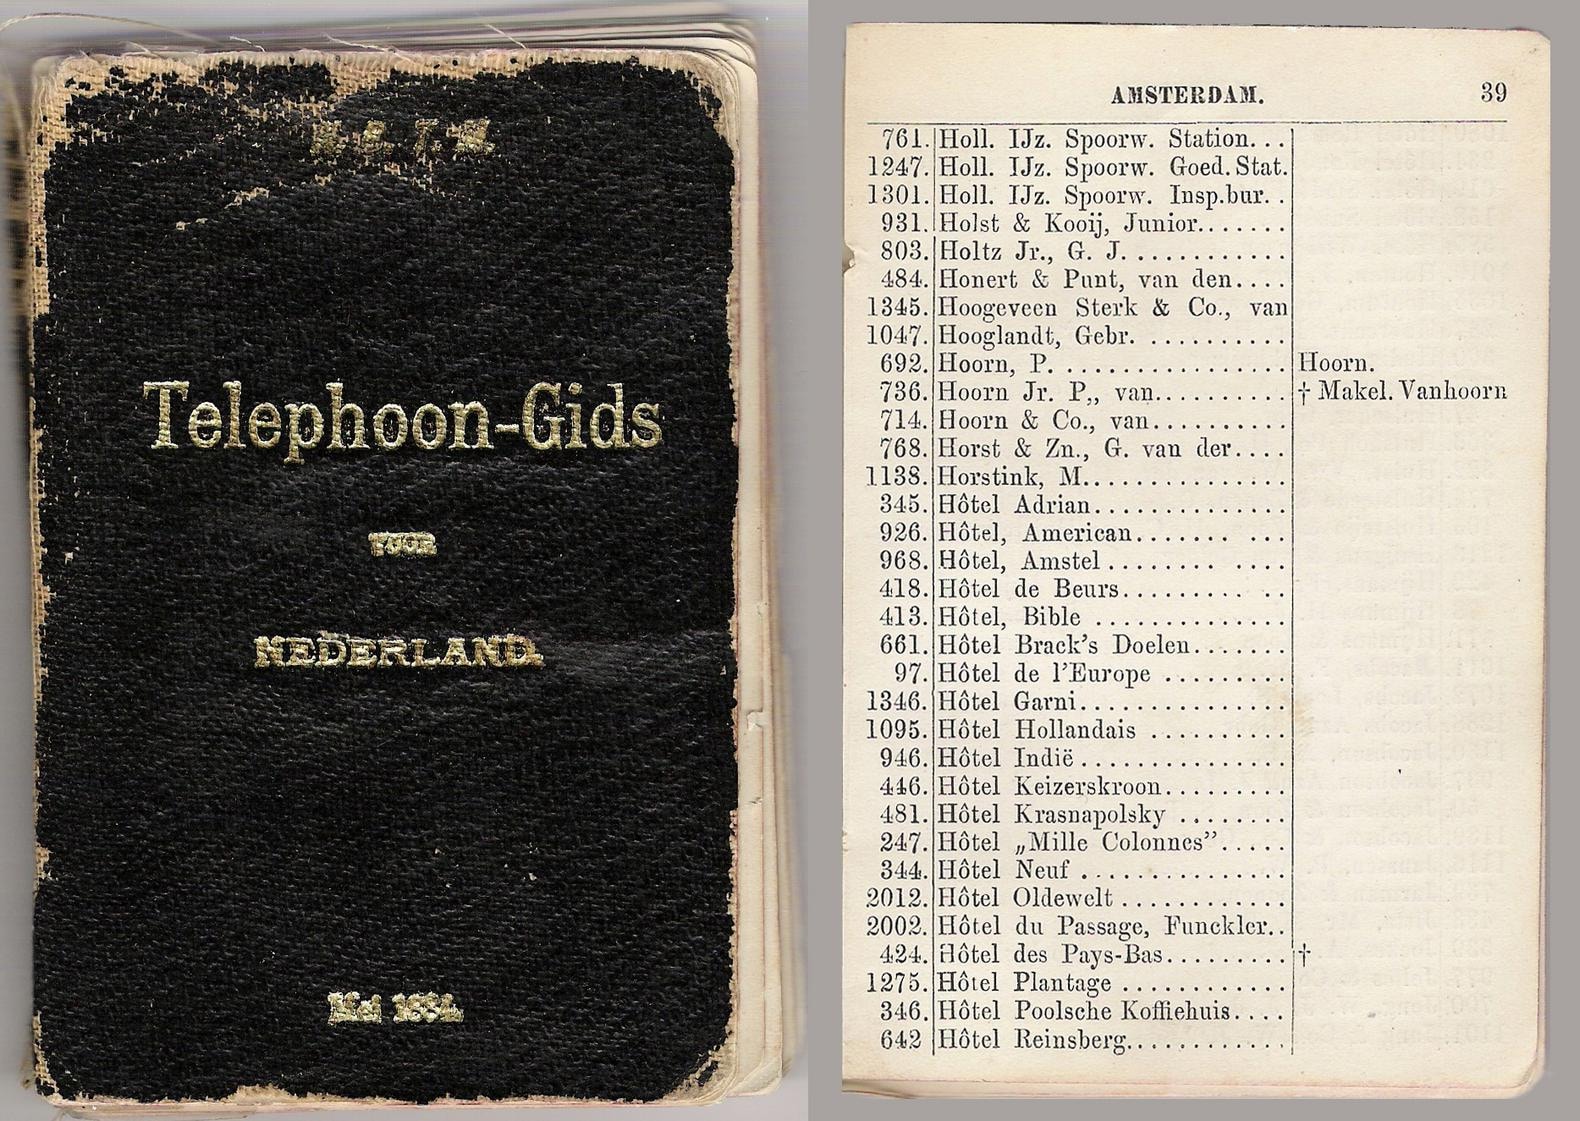 Telephoon-Gids
VOOR
NEDERLAND.
Mei 1884.
AMSTERDAM. 39
761. Holl. IJz. Spoorw. Station...
1247. Holl. IJz. Spoorw. Goed. Stat.
1301. Holl. IJz. Spoorw. Insp.bur..
931. Holst & Kooij, Junior.......
803. Holtz Jr., G. J.............
484. Honert & Punt, van den....
1345. Hoogeveen Sterk & Co., van
1047. Hooglandt, Gebr. ..........
692. Hoorn, P................. Hoorn.
736. Hoorn Jr. P,, van.......... † Makel. Vanhoorn
714. Hoorn & Co., van..........
768. Horst & Zn., G. van der....
1138. Horstink, M...............
345. Hôtel Adrian...............
926. Hôtel, American....... ...
968. Hôtel, Amstel ........ ....
418. Hôtel de Beurs......... ..
413. Hôtel, Bible ..............
661. Hôtel Brack's Doelen.......
97. Hôtel de l'Europe .........
1346. Hôtel Garni................
1095. Hôtel Hollandais ..........
946. Hôtel Indië ................
446. Hôtel Keizerskroon.........
481. Hôtel Krasnapolsky ........
247. Hôtel „Mille Colonnes”.....
344. Hôtel Neuf ...............
2012. Hôtel Oldewelt ............
2002. Hôtel du Passage, Funckler..
424. Hôtel des Pays-Bas......... †
1275. Hôtel Plantage ............
346. Hôtel Poolsche Koffiehuis....
642 Hôtel Reinsberg............